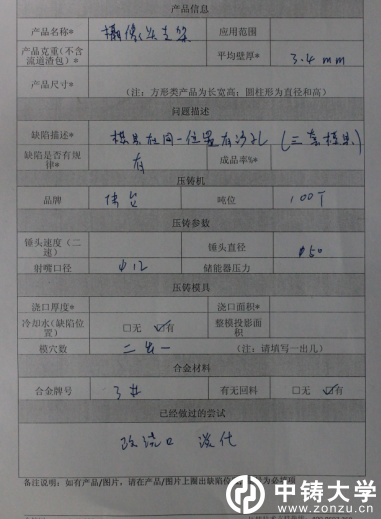 产品信息
产品名称* 摄像头支架 应用范围
产品克重(不含流道渣包)* 平均壁厚* 3.4mm
产品尺寸* (注:方形类产品为长宽高;圆柱形为直径和高)
问题描述
缺陷描述* 模具在同一位置有沙孔(三套模具)
缺陷是否有规律* 有 成品率%*
压铸机
品牌 吨位 100T
压铸参数
锤头速度(二速) 锤头直径 φ50
射嘴口径 φ12 储能器压力
压铸模具
浇口厚度* 浇口面积*
冷却水(缺陷位置) □无 ☑有 整模投影面积
模穴数 二出一 (注:请填写一出几)
合金材料
合金牌号 3# 有无回料 □无 ☑有
已经做过的尝试
改浇口
备注说明:如有产品/图片,请在产品/图片上圈出缺陷位
中铸大学
www.zonzu.cn